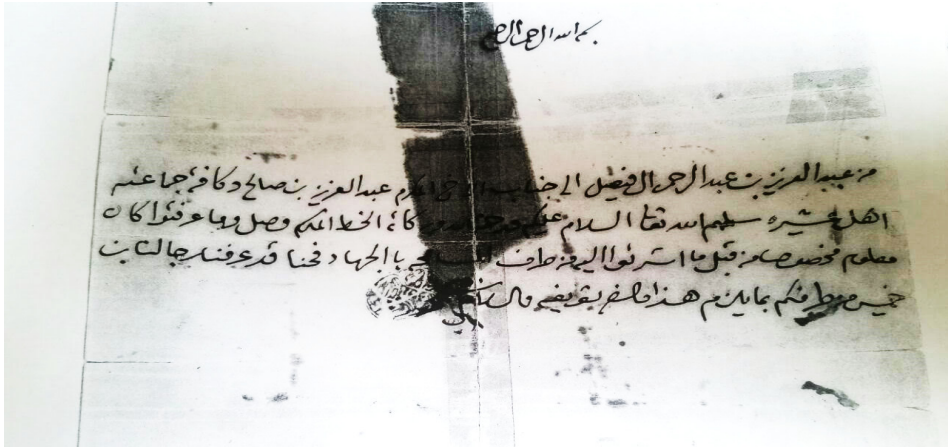 بسم الله الرحمن الرحيم
من عبد العزيز بن عبد الرحمن ال فيصل الى جناب الاخ المكرم عبد العزيز بن صالح وكافة جماعته
اهل عشيره سلمهم الله تعا السلام عليكم ورحمة الله وبركاته الخط المكرم وصل وما عرفتوا كان
معلوم مخصوصا من قبل ما اشرتوا اليه من طرف بالجهاد فحنا قد عرفنا رجالنا بن
خميس من طرفكم بما يلزم هذا والسلام